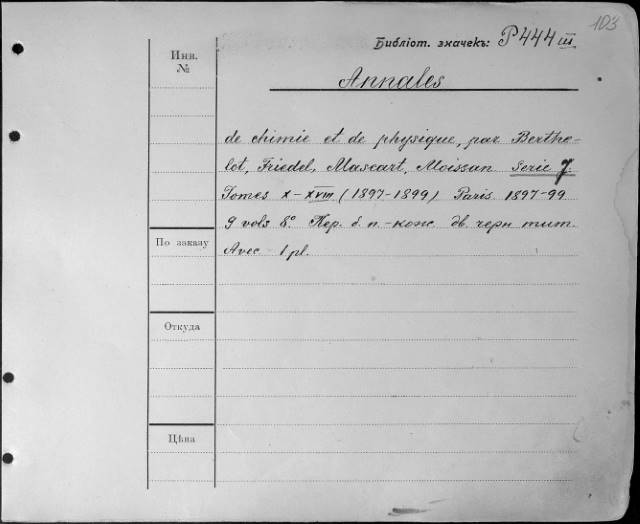 103
Библіот. значекъ: P 444 III
Инв.
№
Annales
de chimie et de physique, par Berthe-
lot, Friedel, Mascart, Moissan Serie 7.
Tomes X-XVIII (1897-1899) Paris 1897-99
9 vols 8°. Пер. б. п.-кож. дв. черн тит.
По заказу
Avec 1 pl.
Откуда
Цѣна